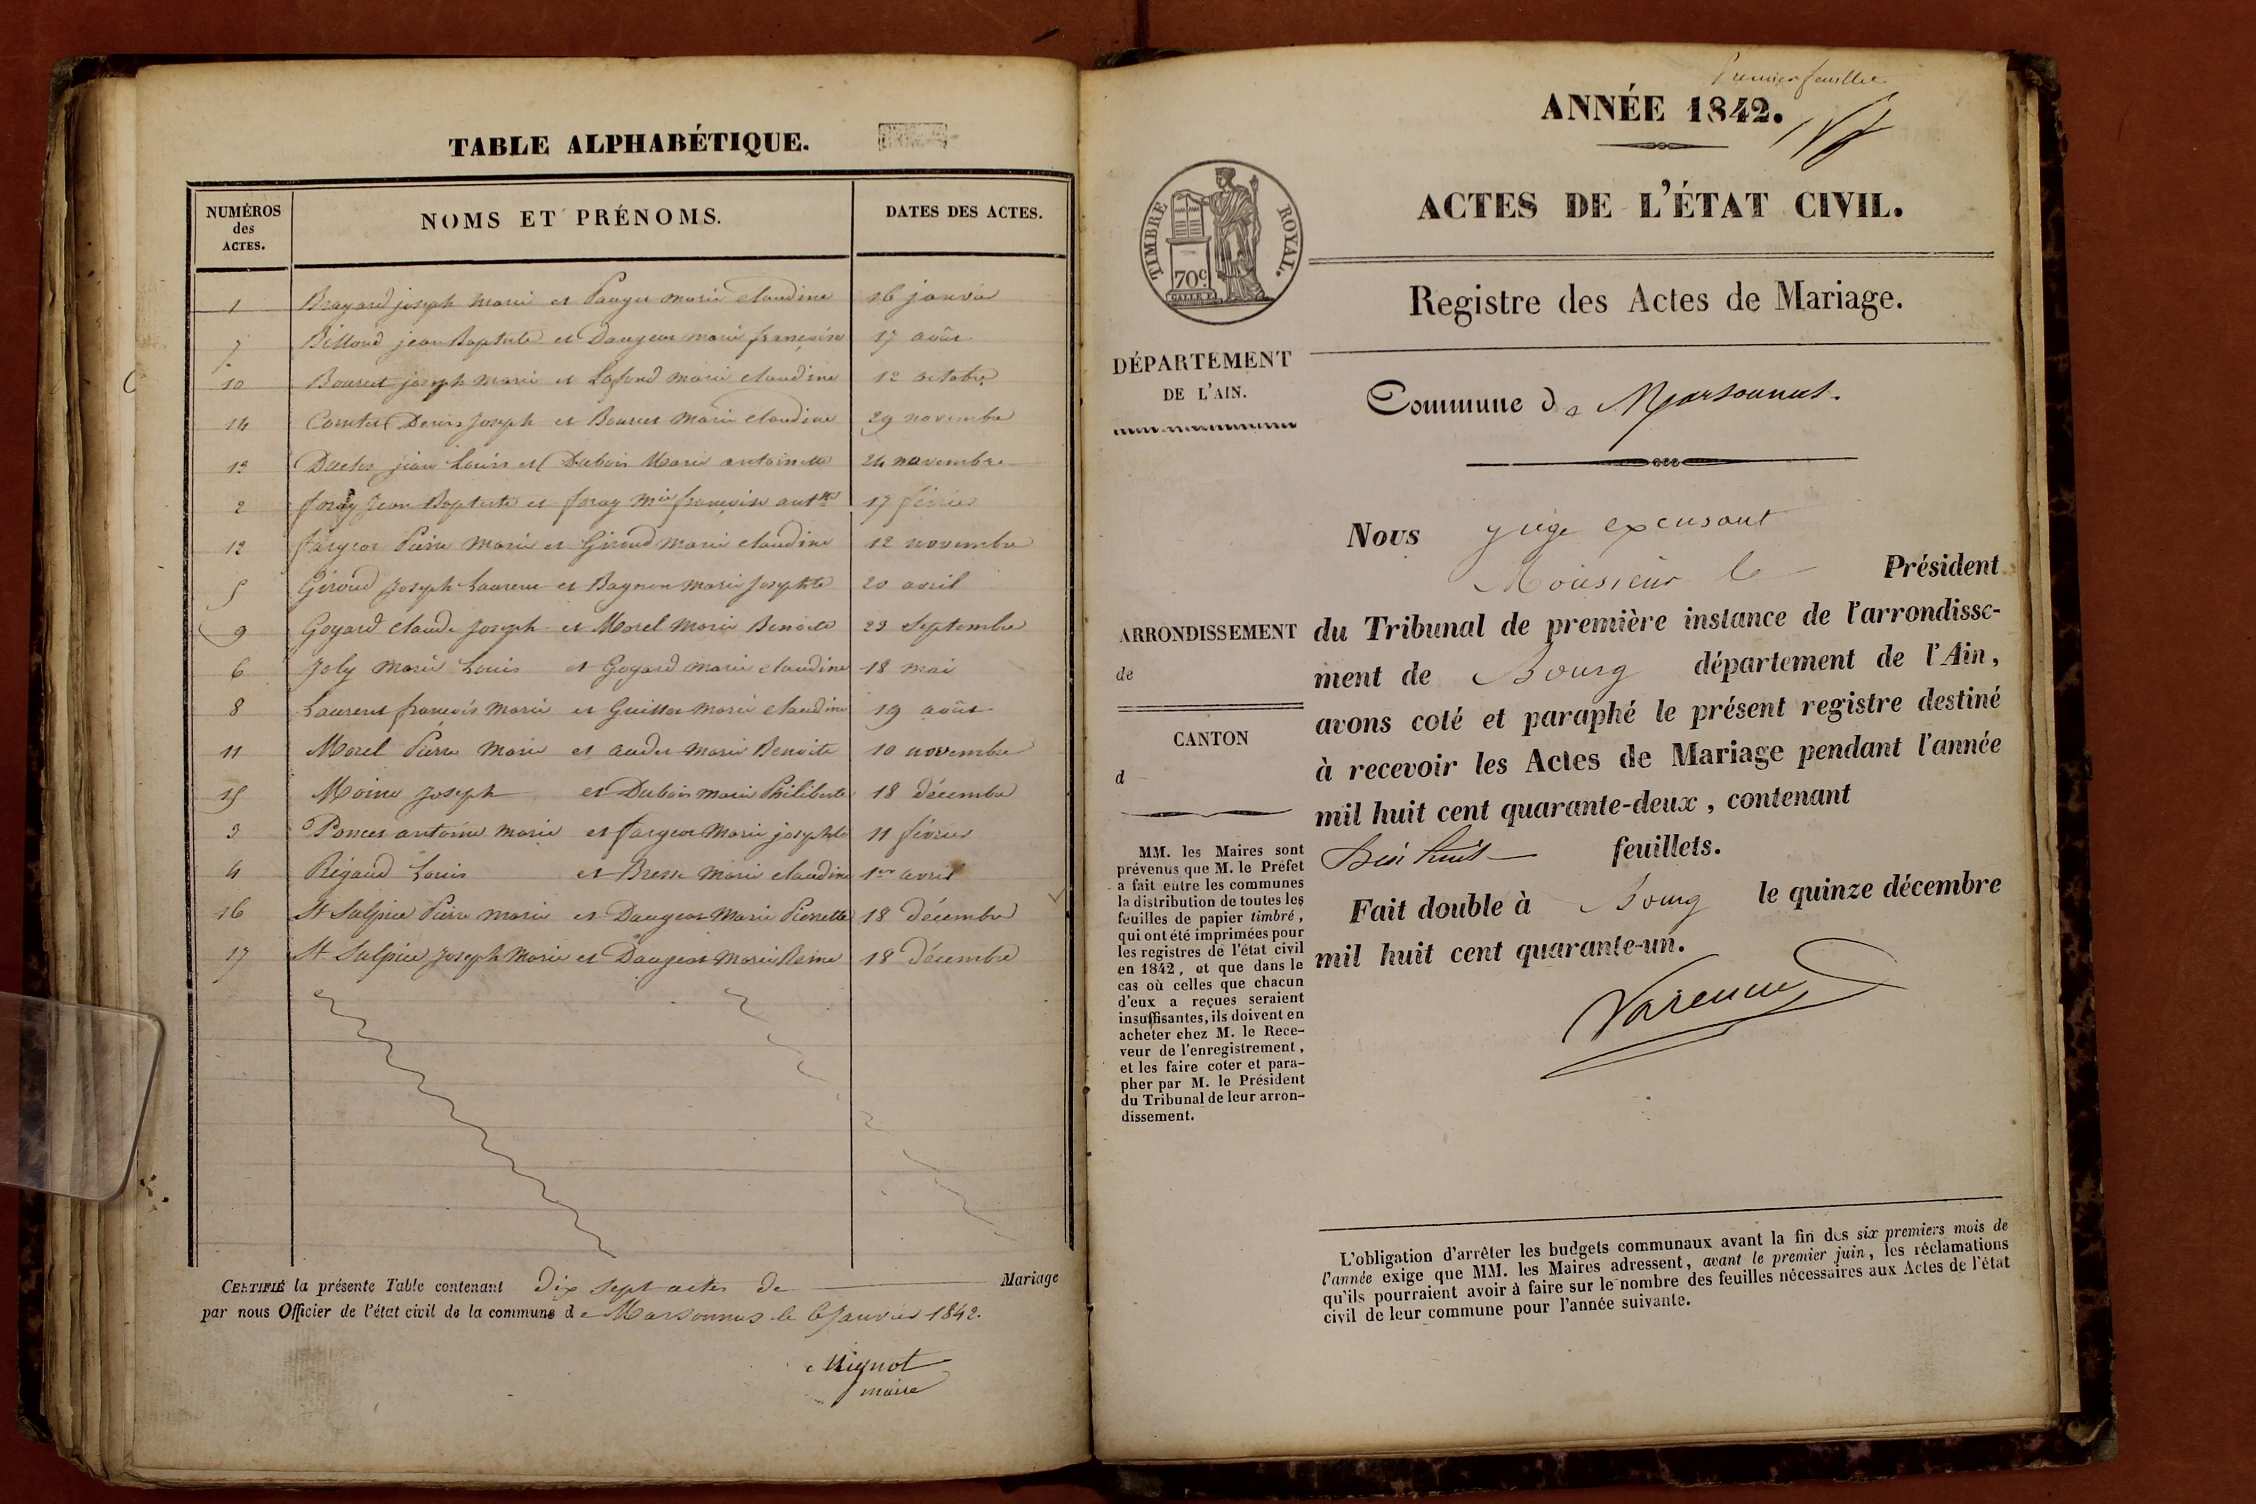 TABLE ALPHABÉTIQUE.
NUMÉROS
des
ACTES.
NOMS ET PRÉNOMS.
DATES DES ACTES.
1 Brayard joseph marie et Pauget marie claudine 16 janvier
7 Billoud jean Baptiste et Daugeor marie françoise 17 août
10 Bourcet joseph marie et Lafond marie claudine 12 octobre
14 Denis Joseph et Bourcet marie claudine 29 novembre
13 jean Louis et Dubois Marie antoinette 24 novembre
2 foray Jean Baptiste et foray mie françoise antte 17 février
12 fargeot Pierre Marie et Giroud marie claudine 12 novembre
5 Giroud Joseph Laurent et marie Josephte 20 avril
9 Goyard claude Joseph et Morel marie Benoite 23 Septembre
6 Joly marie Louis et Goyard marie claudine 18 mai
8 Laurent françois marie et Guillot marie claudine 19 août
11 Morel Pierre Marie et marie Benoite 10 novembre
15 Moine Joseph et Dubois marie Philiberte 18 décembre
3 Poncet antoine marie et fargeot Marie josephte 11 février
4 Rigaud Louis et Bresse marie claudine 1er avril
16 St Sulpice Pierre marie et Daugeor Marie Pierrette 18 décembre
17 St Sulpice Joseph Marie et Daugeor marie Reine 18 décembre
CERTIFIÉ la présente Table contenant dix sept actes de Mariage
par nous Officier de l'état civil de la commune de Marsonnas le 6 Janvier 1842.
Mignot
maire
Premier feuillet
ANNÉE 1842.
ACTES DE L'ÉTAT CIVIL.
TIMBRE ROYAL.
70c
Registre des Actes de Mariage.
DÉPARTEMENT
DE L'AIN.
Commune de Marsonnas.
Nous juge excusant
Monsieur le Président
ARRONDISSEMENT
de
du Tribunal de première instance de l'arrondisse-
ment de Bourg département de l'Ain,
avons coté et paraphé le présent registre destiné
CANTON
d
à recevoir les Actes de Mariage pendant l'année
mil huit cent quarante-deux, contenant
dix huit feuillets.
Fait double à Bourg le quinze décembre
mil huit cent quarante-un.
Varenne
MM. les Maires sont
prévenus que M. le Préfet
a fait entre les communes
la distribution de toutes les
feuilles de papier timbré,
qui ont été imprimées pour
les registres de l'état civil
en 1842, et que dans le
cas où celles que chacun
d'eux a reçues seraient
insuffisantes, ils doivent en
acheter chez M. le Rece-
veur de l'enregistrement,
et les faire coter et para-
pher par M. le Président
du Tribunal de leur arron-
dissement.
L'obligation d'arrêter les budgets communaux avant la fin des six premiers mois de
l'année exige que MM. les Maires adressent, avant le premier juin, les réclamations
qu'ils pourraient avoir à faire sur le nombre des feuilles nécessaires aux Actes de l'état
civil de leur commune pour l'année suivante.